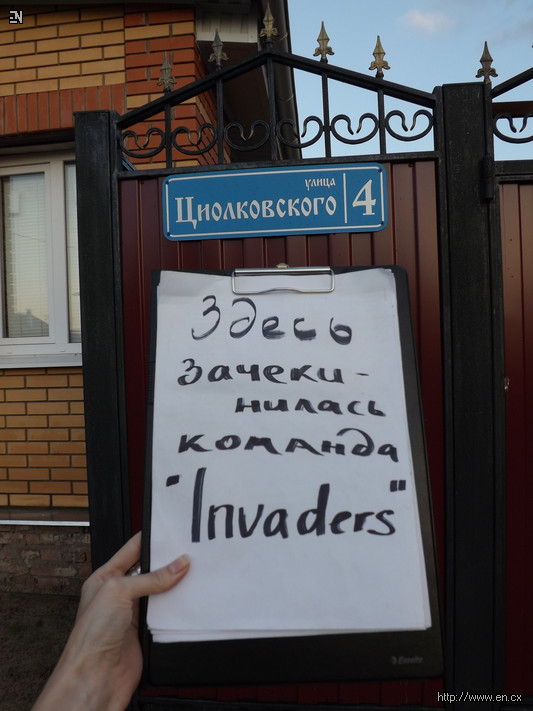 EN
улица
Циолковского 4
Здесь
зачеки-
нилась
команда
"Invaders"
Esselte
http://www.en.cx